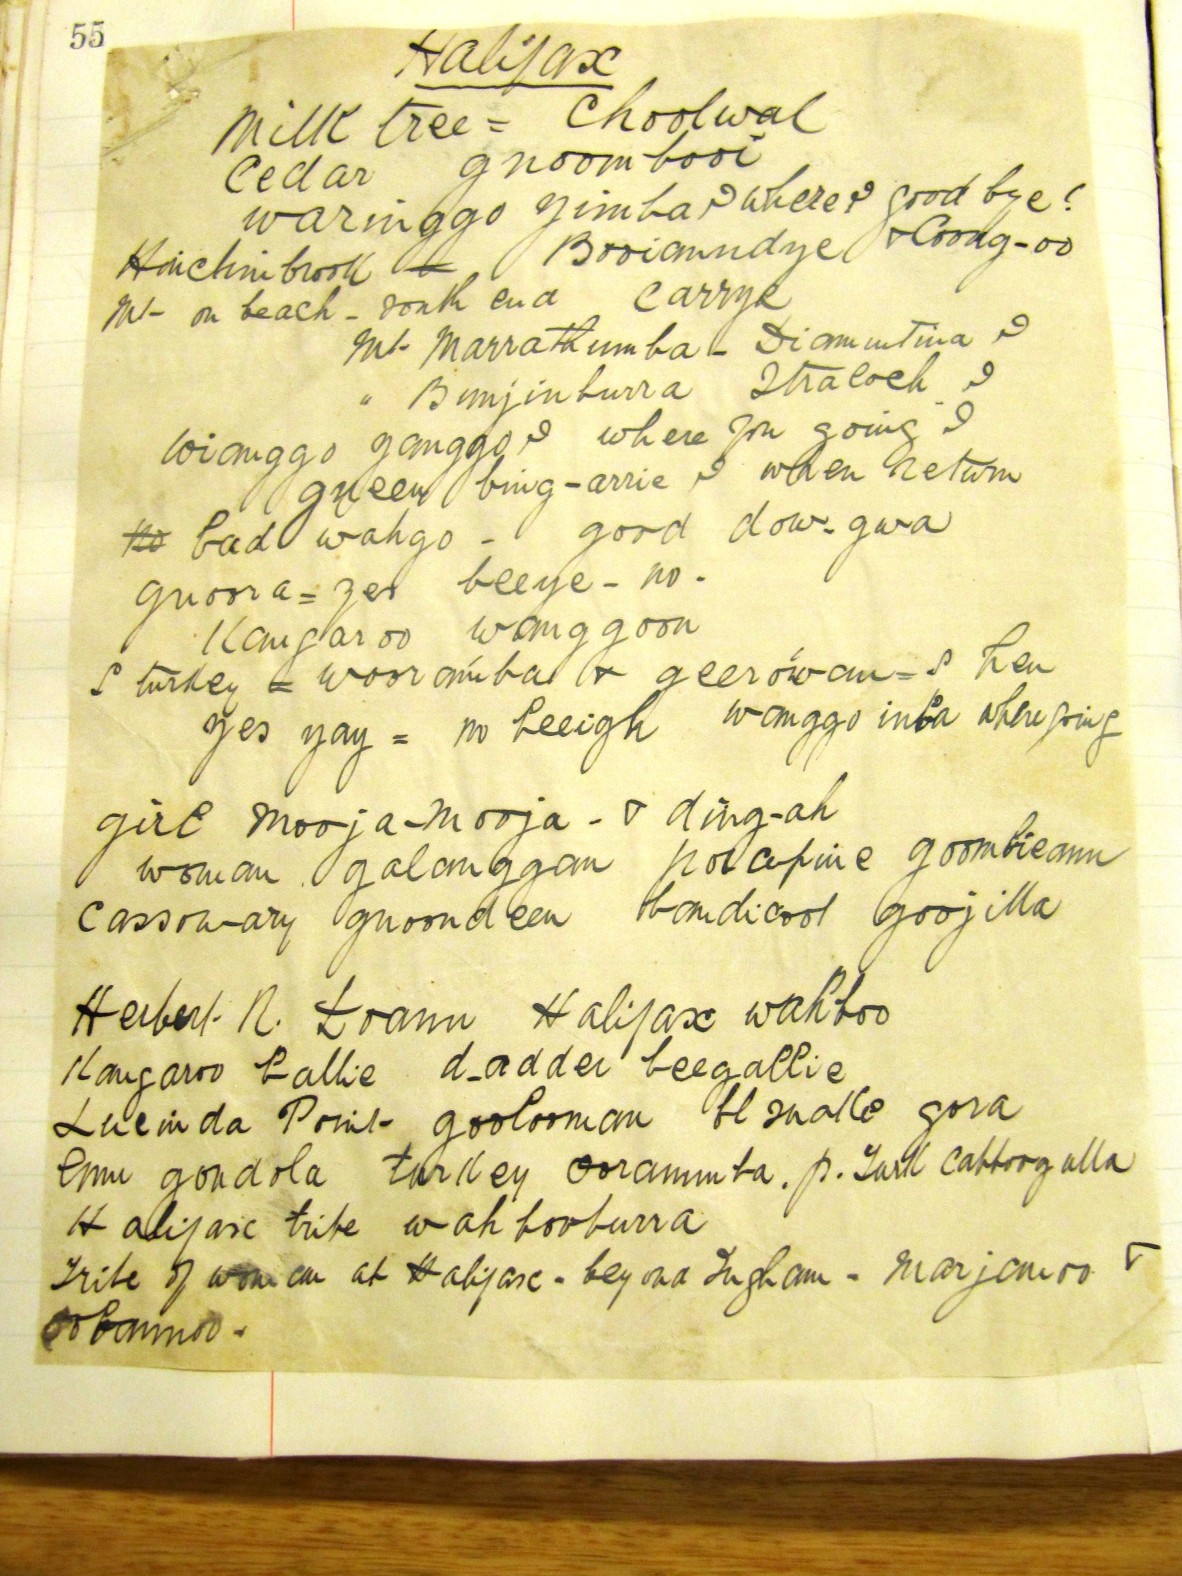 55
Halifax
Milk tree = Choolwal
Cedar gnoombooi
waringgo yimba? where? good bye?
Hinchinbrook = Booiamndye & Coong-oo
Mt on beach - south end Carryk
Mt Marrathumba - Diamantina ?
" Bunjinburra Straloch ?
wianggo yanggo? where you going?
gneen bing-arrie ? when return
bad wahgo - good dow-gwa
gnoora = yes beeye - no -
Kangaroo wanggoon
S turkey = wooramba & geerowan = S hen
yes yay = no beeigh wanggo inba where going
girl mooja-mooja - & ding-ah
woman galanggan porcapine goombieann
Cassowary gnoondeen bandicoot goojilla
Herbert R. Loann Halifax wahboo
Kangaroo ballie d-adder beegallie
Lucinda Point goolooman bl snake gora
Emu gondola turkey oorammba. p. Turk Cabboogulla
Halifax tribe wahbooburra
Tribe of woman at Halifax - beyond Ingham - Marjamoo &